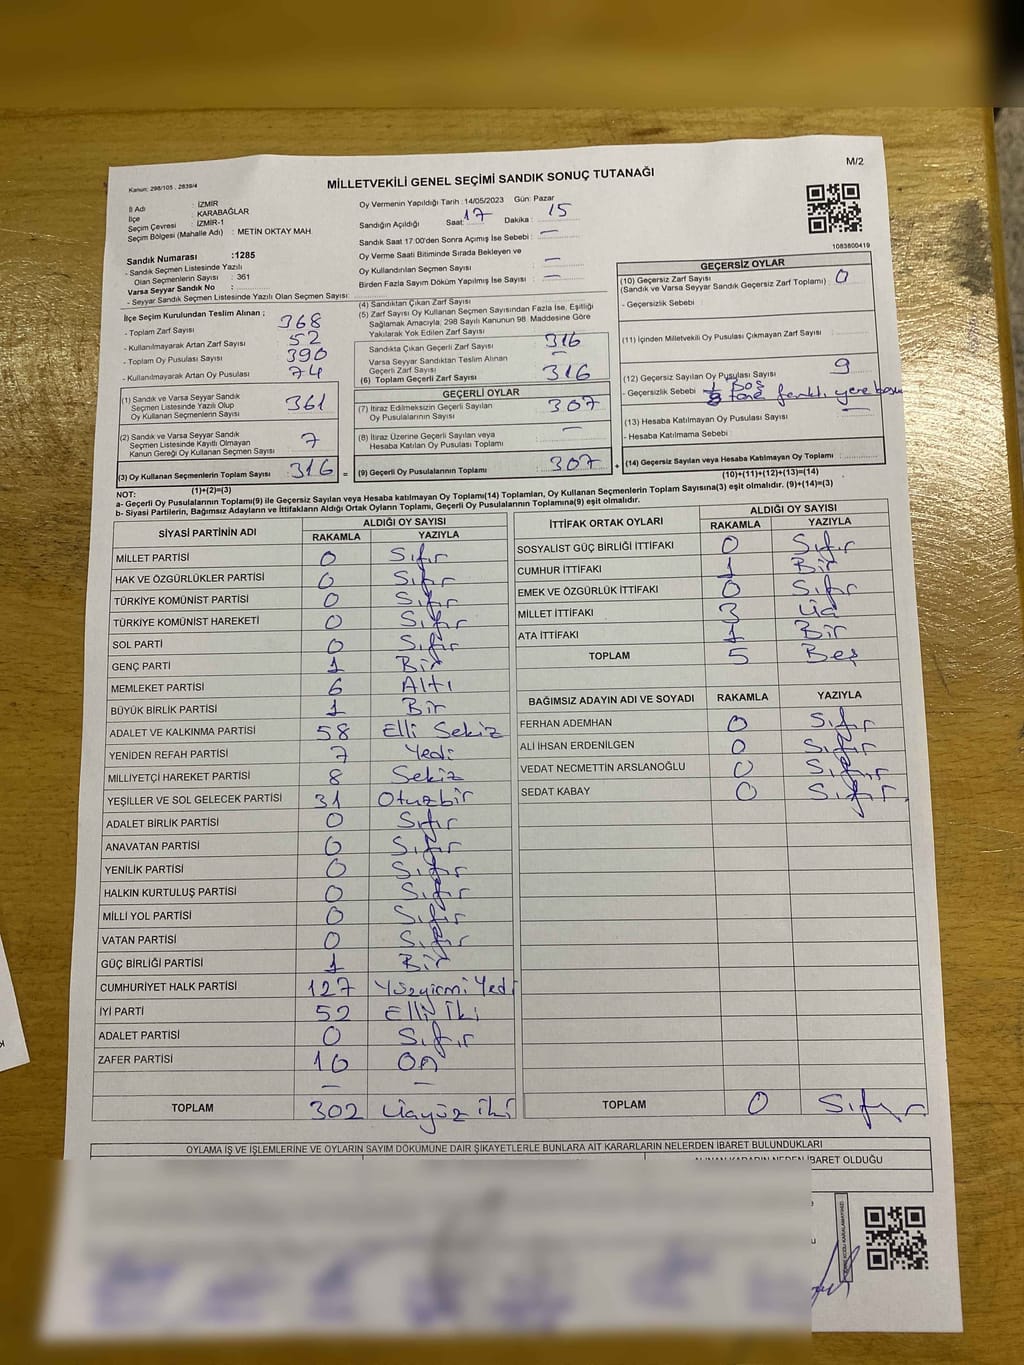 M/2
Kanun: 298/105 , 2839/4
MİLLETVEKİLİ GENEL SEÇİMİ SANDIK SONUÇ TUTANAĞI
1083800419
İl Adı : İZMİR
İlçe : KARABAĞLAR
Seçim Çevresi : İZMİR-1
Seçim Bölgesi (Mahalle Adı) : METİN OKTAY MAH
Sandık Numarası :1285
- Sandık Seçmen Listesinde Yazılı
Olan Seçmenlerin Sayısı : 361
Varsa Seyyar Sandık No :
- Seyyar Sandık Seçmen Listesinde Yazılı Olan Seçmen Sayısı:
Oy Vermenin Yapıldığı Tarih :14/05/2023 Gün: Pazar
Sandığın Açıldığı Saat: 17 Dakika : 15
Sandık Saat 17:00'den Sonra Açımış İse Sebebi : —
Oy Verme Saati Bitiminde Sırada Bekleyen ve
Oy Kullandırılan Seçmen Sayısı : —
Birden Fazla Sayım Döküm Yapılmış İse Sayısı : —
İlçe Seçim Kurulundan Teslim Alınan ;
- Toplam Zarf Sayısı 368
- Kullanılmayarak Artan Zarf Sayısı 52
- Toplam Oy Pusulası Sayısı 390
- Kullanılmayarak Artan Oy Pusulası 74
(1) Sandık ve Varsa Seyyar Sandık
Seçmen Listesinde Yazılı Olup
Oy Kullanan Seçmenlerin Sayısı 361
(2) Sandık ve Varsa Seyyar Sandık
Seçmen Listesinde Kayıtlı Olmayan
Kanun Gereği Oy Kullanan Seçmen Sayısı 7
(3) Oy Kullanan Seçmenlerin Toplam Sayısı 316 =
(1)+(2)=(3)
(4) Sandıktan Çıkan Zarf Sayısı
(5) Zarf Sayısı Oy Kullanan Seçmen Sayısından Fazla İse, Eşitliği
Sağlamak Amacıyla; 298 Sayılı Kanunun 98. Maddesine Göre
Yakılarak Yok Edilen Zarf Sayısı
Sandıkta Çıkan Geçerli Zarf Sayısı 316
Varsa Seyyar Sandıktan Teslim Alınan
Geçerli Zarf Sayısı —
(6) Toplam Geçerli Zarf Sayısı 316
GEÇERLİ OYLAR
(7) İtiraz Edilmeksizin Geçerli Sayılan
Oy Pusulalarının Sayısı 307
(8) İtiraz Üzerine Geçerli Sayılan veya
Hesaba Katılan Oy Pusulası Toplamı —
(9) Geçerli Oy Pusulalarının Toplamı : 307 +
GEÇERSİZ OYLAR
(10) Geçersiz Zarf Sayısı
(Sandık ve Varsa Seyyar Sandık Geçersiz Zarf Toplamı) 0
- Geçersizlik Sebebi
(11) İçinden Milletvekili Oy Pusulası Çıkmayan Zarf Sayısı
(12) Geçersiz Sayılan Oy Pusulası Sayısı 9
- Geçersizlik Sebebi boş
tane farklı yere
(13) Hesaba Katılmayan Oy Pusulası Sayısı —
- Hesaba Katılmama Sebebi
(14) Geçersiz Sayılan veya Hesaba Katılmayan Oy Toplamı :
(10)+(11)+(12)+(13)=(14)
NOT:
a- Geçerli Oy Pusulalarının Toplamı(9) ile Geçersiz Sayılan veya Hesaba katılmayan Oy Toplamı(14) Toplamları, Oy Kullanan Seçmenlerin Toplam Sayısına(3) eşit olmalıdır. (9)+(14)=(3)
b- Siyasi Partilerin, Bağımsız Adayların ve İttifakların Aldığı Ortak Oyların Toplamı, Geçerli Oy Pusulalarının Toplamına(9) eşit olmalıdır.
SİYASİ PARTİNİN ADI ALDIĞI OY SAYISI
RAKAMLA YAZIYLA
MİLLET PARTİSİ 0 Sıfır
HAK VE ÖZGÜRLÜKLER PARTİSİ 0 Sıfır
TÜRKİYE KOMÜNİST PARTİSİ 0 Sıfır
TÜRKİYE KOMÜNİST HAREKETİ 0 Sıfır
SOL PARTİ 0 Sıfır
GENÇ PARTİ 1 Bir
MEMLEKET PARTİSİ 6 Altı
BÜYÜK BİRLİK PARTİSİ 1 Bir
ADALET VE KALKINMA PARTİSİ 58 Elli Sekiz
YENİDEN REFAH PARTİSİ 7 Yedi
MİLLİYETÇİ HAREKET PARTİSİ 8 Sekiz
YEŞİLLER VE SOL GELECEK PARTİSİ 31 Otuzbir
ADALET BİRLİK PARTİSİ 0 Sıfır
ANAVATAN PARTİSİ 0 Sıfır
YENİLİK PARTİSİ 0 Sıfır
HALKIN KURTULUŞ PARTİSİ 0 Sıfır
MİLLİ YOL PARTİSİ 0 Sıfır
VATAN PARTİSİ 0 Sıfır
GÜÇ BİRLİĞİ PARTİSİ 1 Bir
CUMHURİYET HALK PARTİSİ 127 Yüzyirmi Yedi
İYİ PARTİ 52 Elli İki
ADALET PARTİSİ 0 Sıfır
ZAFER PARTİSİ 10 On
— —
TOPLAM 302 Üçyüz iki
İTTİFAK ORTAK OYLARI ALDIĞI OY SAYISI
RAKAMLA YAZIYLA
SOSYALİST GÜÇ BİRLİĞİ İTTİFAKI 0 Sıfır
CUMHUR İTTİFAKI 1 Bir
EMEK VE ÖZGÜRLÜK İTTİFAKI 0 Sıfır
MİLLET İTTİFAKI 3 Üç
ATA İTTİFAKI 1 Bir
TOPLAM 5 Beş
BAĞIMSIZ ADAYIN ADI VE SOYADI RAKAMLA YAZIYLA
FERHAN ADEMHAN 0 Sıfır
ALİ İHSAN ERDENİLGEN 0 Sıfır
VEDAT NECMETTİN ARSLANOĞLU 0 Sıfır
SEDAT KABAY 0 Sıfır
TOPLAM 0 Sıfır
OYLAMA İŞ VE İŞLEMLERİNE VE OYLARIN SAYIM DÖKÜMÜNE DAİR ŞİKAYETLERLE BUNLARA AİT KARARLARIN NELERDEN İBARET BULUNDUKLARI
ALINAN KARARIN NEDEN İBARET OLDUĞU